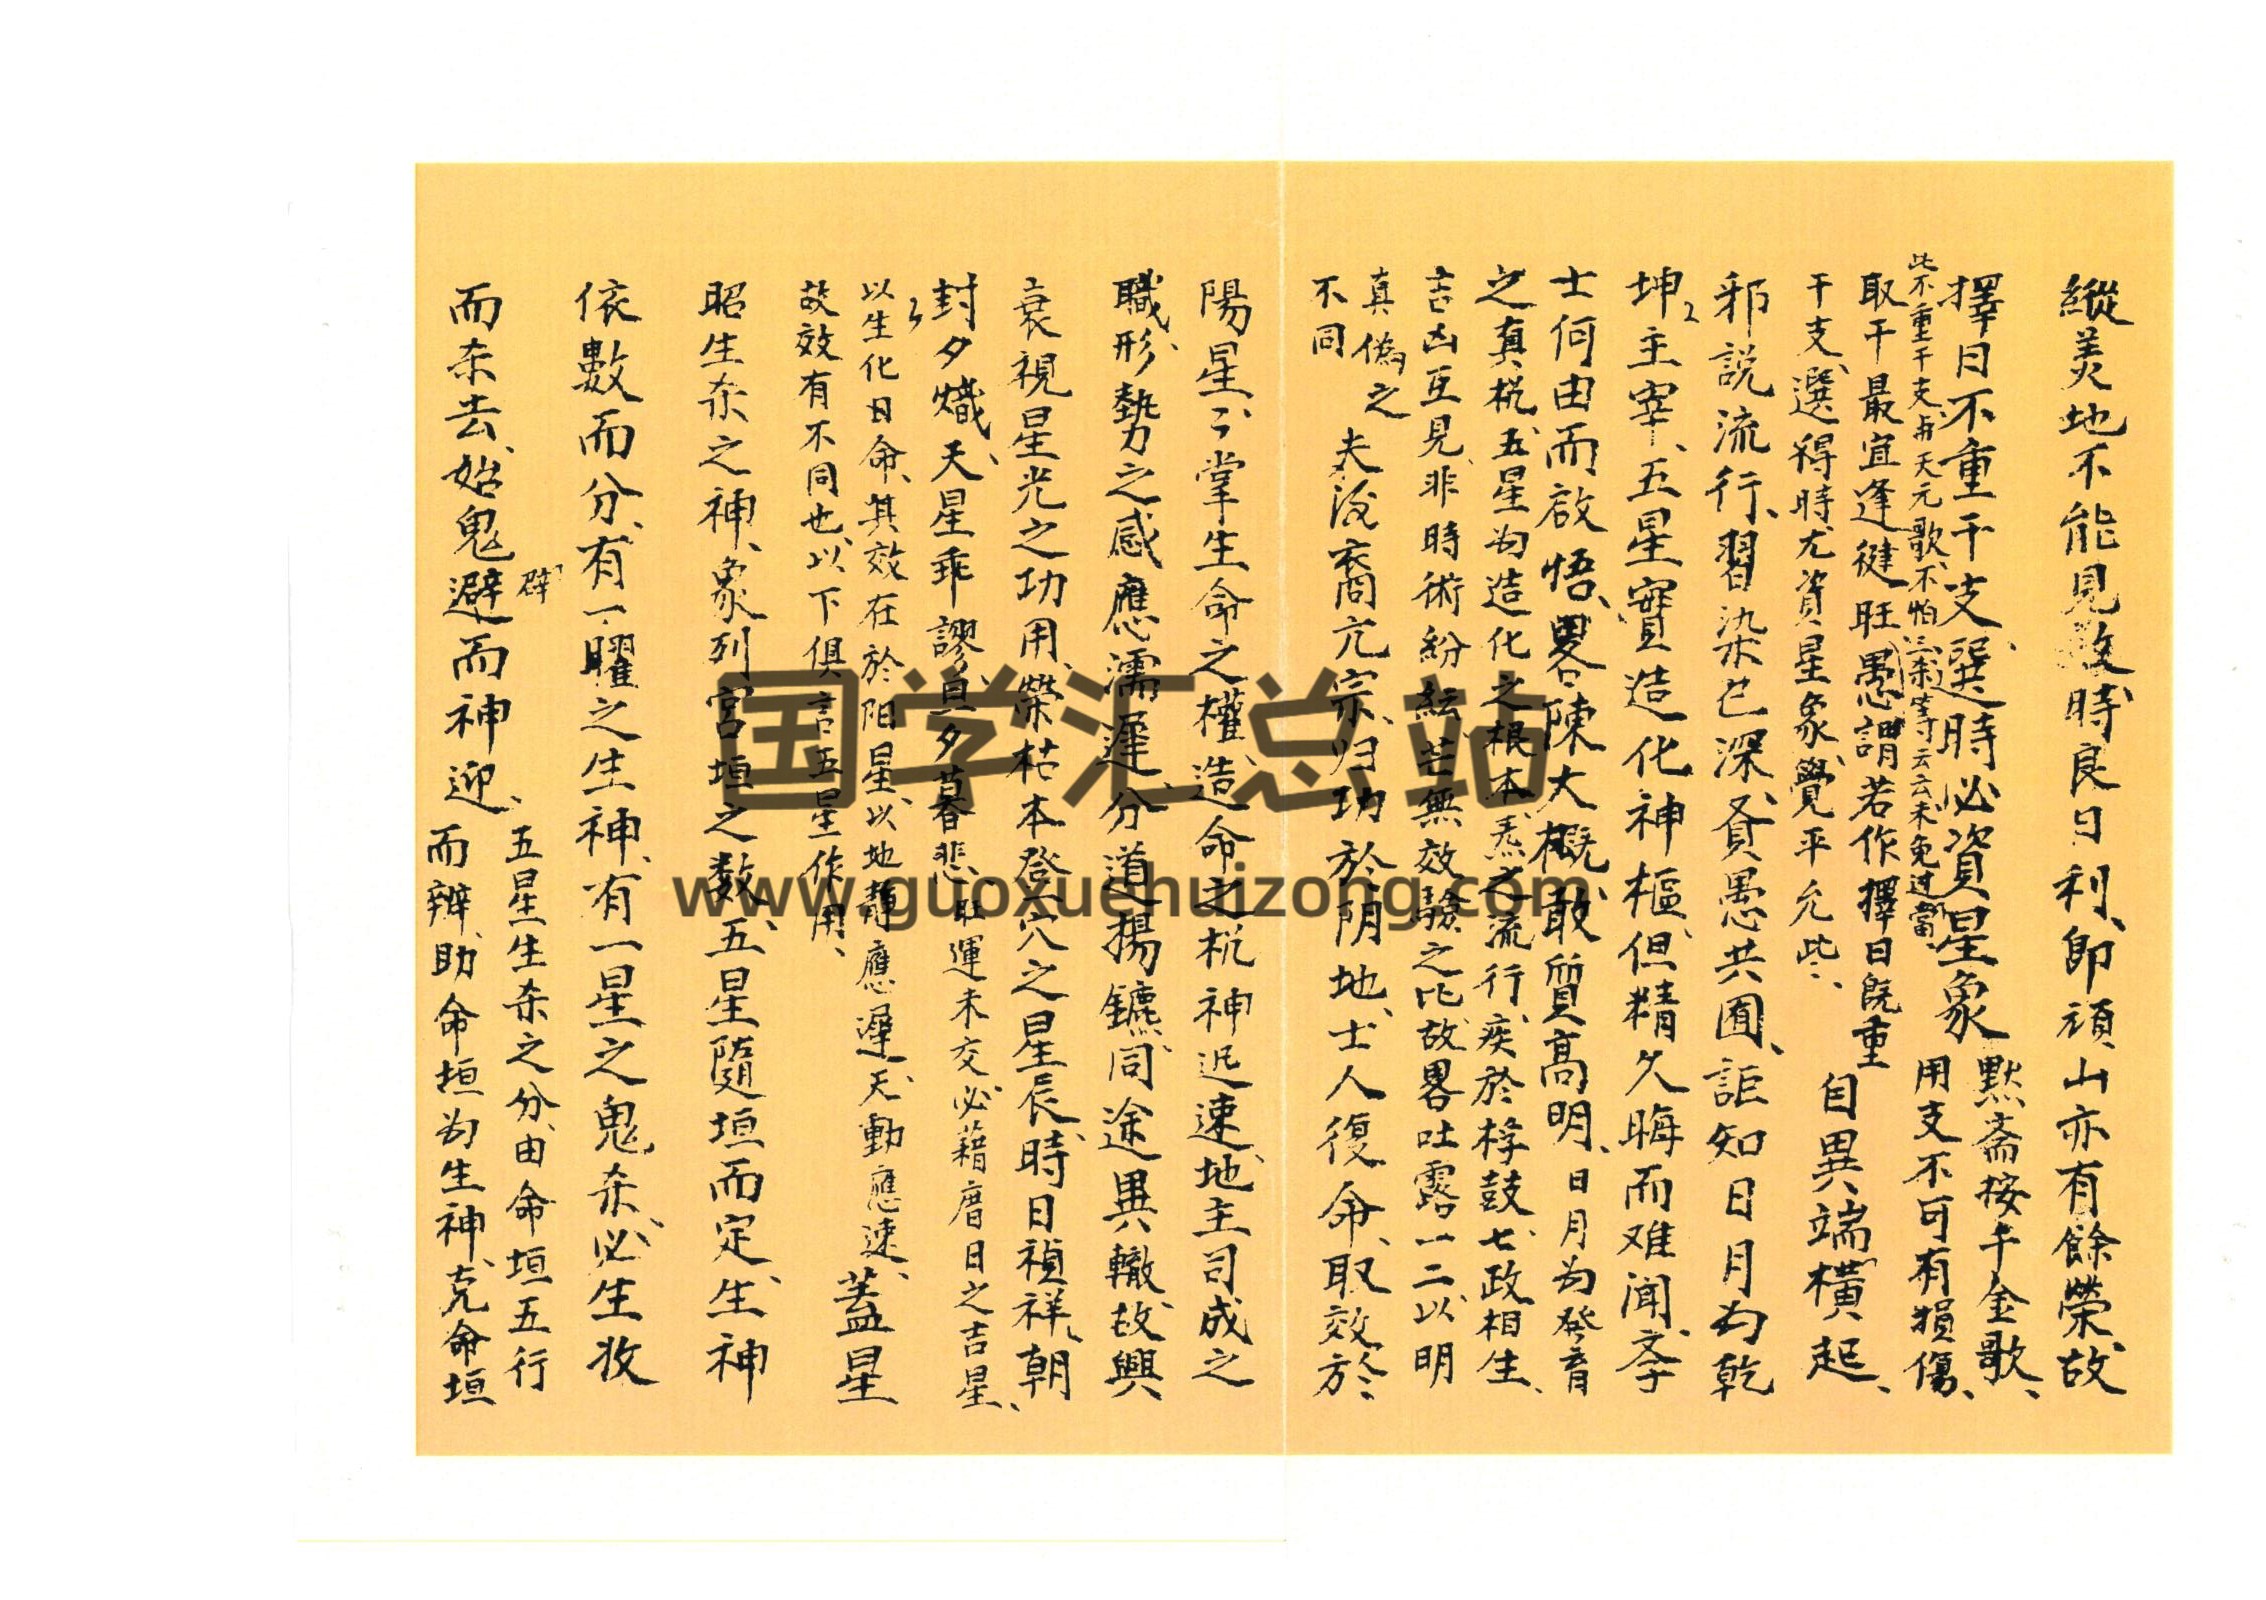 縱美地不能見效、時良日利、即頑山亦有餘榮、故
擇日不重干支、選時必資星象
默齋按千金歌、
用支不可有損傷、
此不重干支、与天元歌、不怕三杀等云云、未免过當、
取干最宜逢健旺、愚謂若作擇日既重
干支、選得時尤資星象、覺平允些、
自異端橫起、
邪説流行、習染已深、賢愚共囿、詎知日月为乾
坤主宰、五星實造化神樞、但精久晦而难闻、季
士何由而啟悟、畧陳大概、敢質高明、
日月为發育
之真机、五星为造化之根本、炁之流行、疾於桴鼓、七政相生、
吉凶互見、非時術紛紜、茫無效驗之比、故畧吐露一二、以明
真偽之
不同
夫後裔亢宗、归功於阴地、士人復命、取效於
陽星、ミ掌生命之權、造命之机神迅速、地主司成之
職、形勢之感應濡遲、分道揚鑣、同途異轍、故興
衰視星光之功用、榮枯本登穴之星辰、時日禎祥、朝
封夕熾、天星乖謬、旦夕暮悲、
旺運未交、必藉曆日之吉星、
以生化日命、其效在於阳星、以地靜應遲、天動應速、
故效有不同也、以下俱言五星作用、
蓋星
昭生杀之神、象列宮垣之数、五星隨垣而定、生神
依數而分、有一曜之生神、有一星之鬼杀、必生牧
而杀去、始鬼避而神迎、
辟
五星生杀之分、由命垣五行
而辨、助命垣为生神、克命垣
国学汇总站
www.guoxuehuizong.com